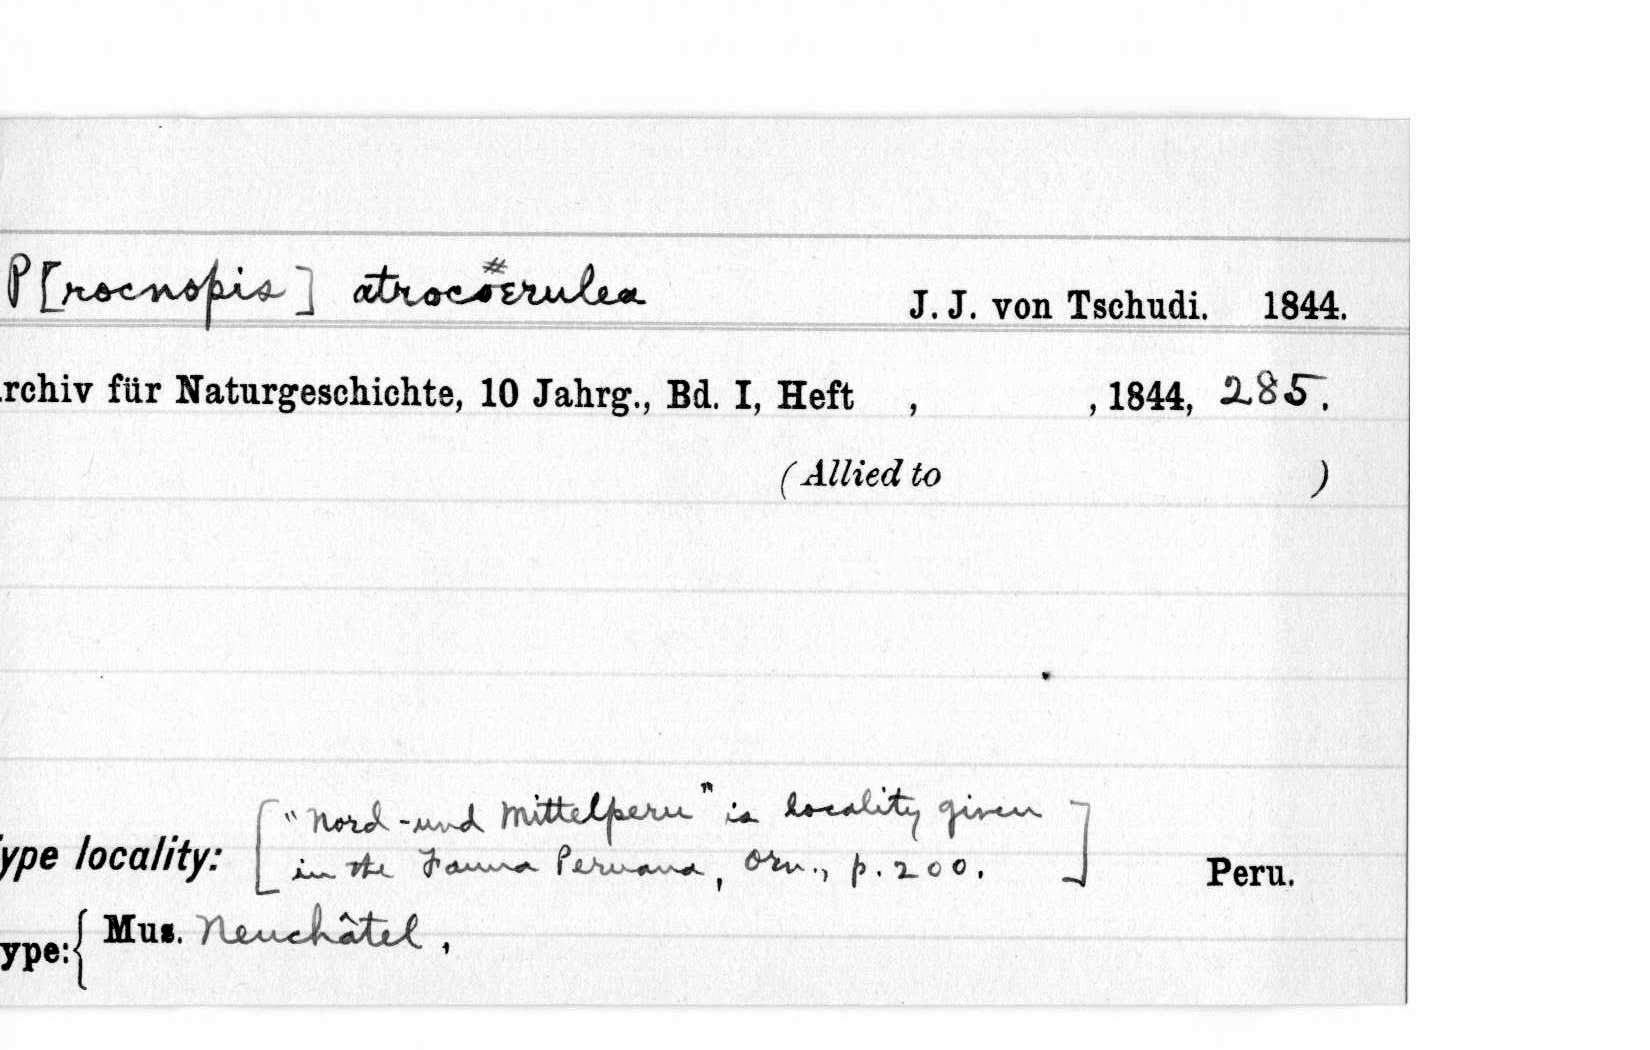 P[rocnopis] atrocoerulea J. J. von Tschudi. 1844.
rchiv für Naturgeschichte, 10 Jahrg., Bd. I, Heft , , 1844, 285.
(Allied to )
["Nord-und Mittelperu" is locality given
ype locality: in the Fauna Peruana, Orn., p. 200.] Peru.
ype: { Mus. Neuchâtel,